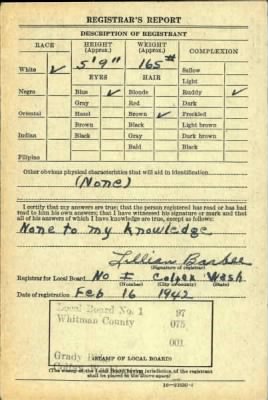 REGISTRAR'S REPORT
DESCRIPTION OF REGISTRANT
RACE HEIGHT (Approx.) WEIGHT (Approx.) COMPLEXION
5' 9" 165#
White ✓ Sallow
EYES HAIR Light
Negro Blue ✓ Blonde Ruddy ✓
Gray Red Dark
Oriental Hazel Brown ✓ Freckled
Brown Black Light brown
Indian Black Gray Dark brown
Bald Black
Filipino
Other obvious physical characteristics that will aid in identification
(None)
I certify that my answers are true; that the person registered has read or has had
read to him his own answers; that I have witnessed his signature or mark and that
all of his answers of which I have knowledge are true, except as follows:
None to my knowledge
Lillian Barbee
(Signature of registrar)
Registrar for Local Board No I Colfax Wash
(Number) (City or county) (State)
Date of registration Feb 16 1942
Local Board No. 1 97
Whitman County 075
001
Grady
(STAMP OF LOCAL BOARD)
(The stamp of the Local Board having jurisdiction of the registrant
shall be placed in the above space)